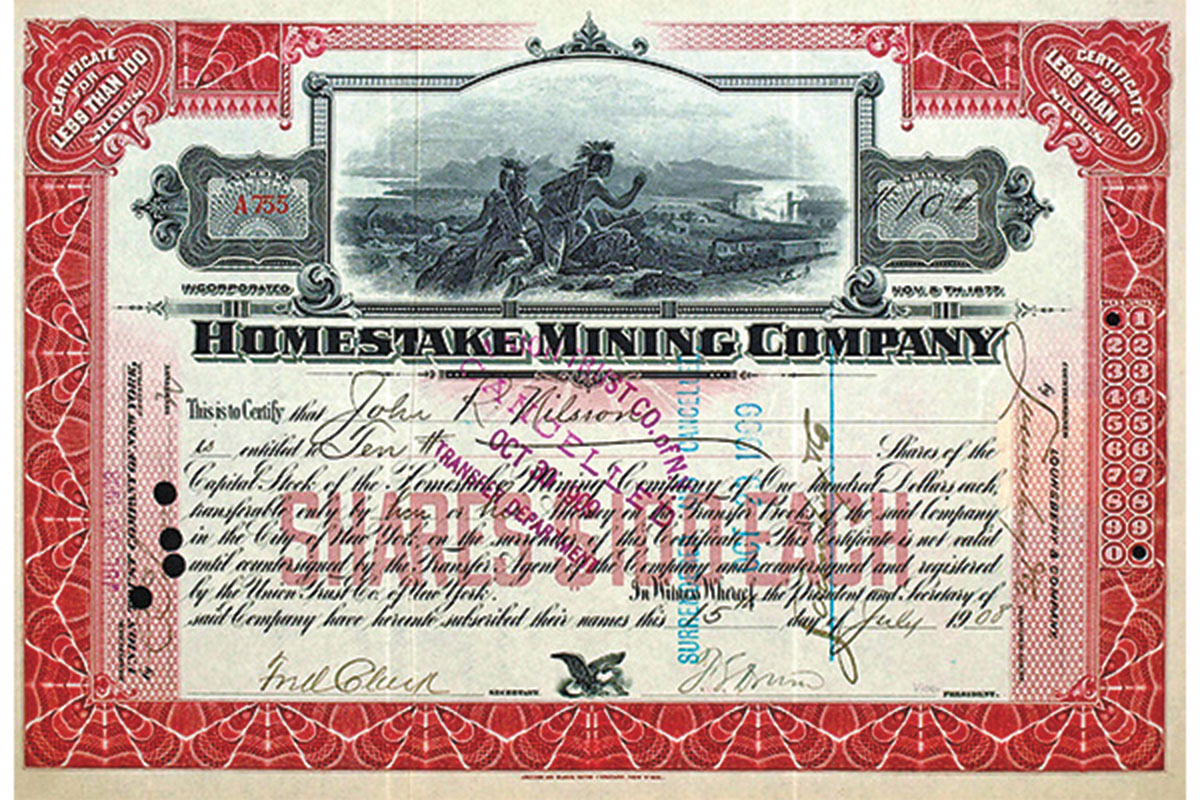 CERTIFICATE
FOR
LESS THAN 100
SHARES
CERTIFICATE
FOR
LESS THAN 100
SHARES
A 755
SHARES
10
INCORPORATED
NOV. 5TH. 1877.
HOMESTAKE MINING COMPANY
This is to Certify that John R. Wilsson
is entitled to Ten # Shares of the
Capital Stock of the Homestake Mining Company of One hundred Dollars each,
transferable only by him or his Attorney on the Transfer Books of the said Company
in the City of New York on the surrender of this Certificate. This Certificate is not valid
until countersigned by the Transfer Agent of the Company and countersigned and registered
by the Union Trust Co. of New York. In Witness Whereof, the President and Secretary of
said Company have hereinto subscribed their names this 15th day of July 1908
Fred Clark SECRETARY.
PRESIDENT.
SHARES $100 EACH
TRUST CO. of N.Y.
CANCELLED
OCT 30 1909
TRANSFER DEPARTMENT
SURRENDERED AND CANCELLED
OCT 1909
COUNTERSIGNED
by
LOUNSBERY & COMPANY
UNION TRUST COMPANY OF NEW YORK
by
1
2 2
3 3
4 4
5 5
6 6
7 7
8 8
9 9
0
AMERICAN BANK NOTE COMPANY, NEW YORK.